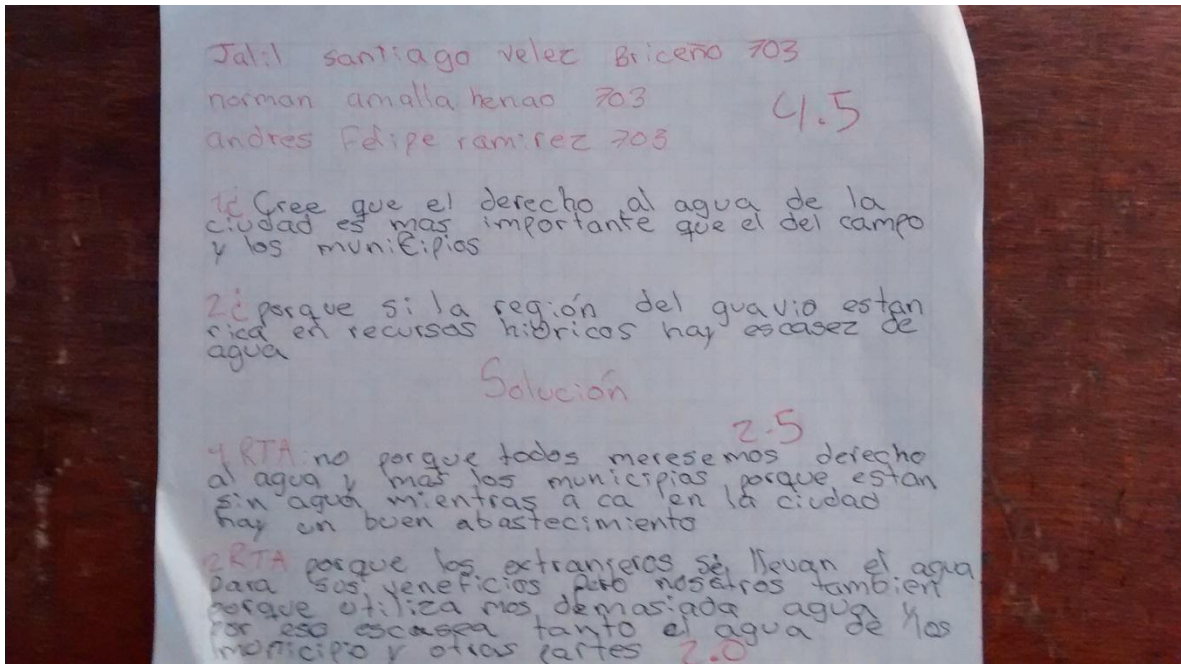 Jalil santiago velez Briceño 703
norman amalla henao 703
4.5
andres Felipe ramirez 703
1¿ Cree que el derecho al agua de la
ciudad es mas importante que el del campo
y los municipios
2¿ porque si la región del guavio estan
rica en recursos hidricos hay escasez de
agua
Solución
2.5
1 RTA no porque todos meresemos derecho
al agua y mas los municipias porque estan
sin agua mientras a ca en la ciudad
hay un buen abastecimiento
2 RTA porque los extranjeros se llevan el agua
para sus veneficios pero nosotros tambien
porque utiliza mos demasiada agua y
por eso escasea tanto el agua de los
municipio y otras partes 2.0